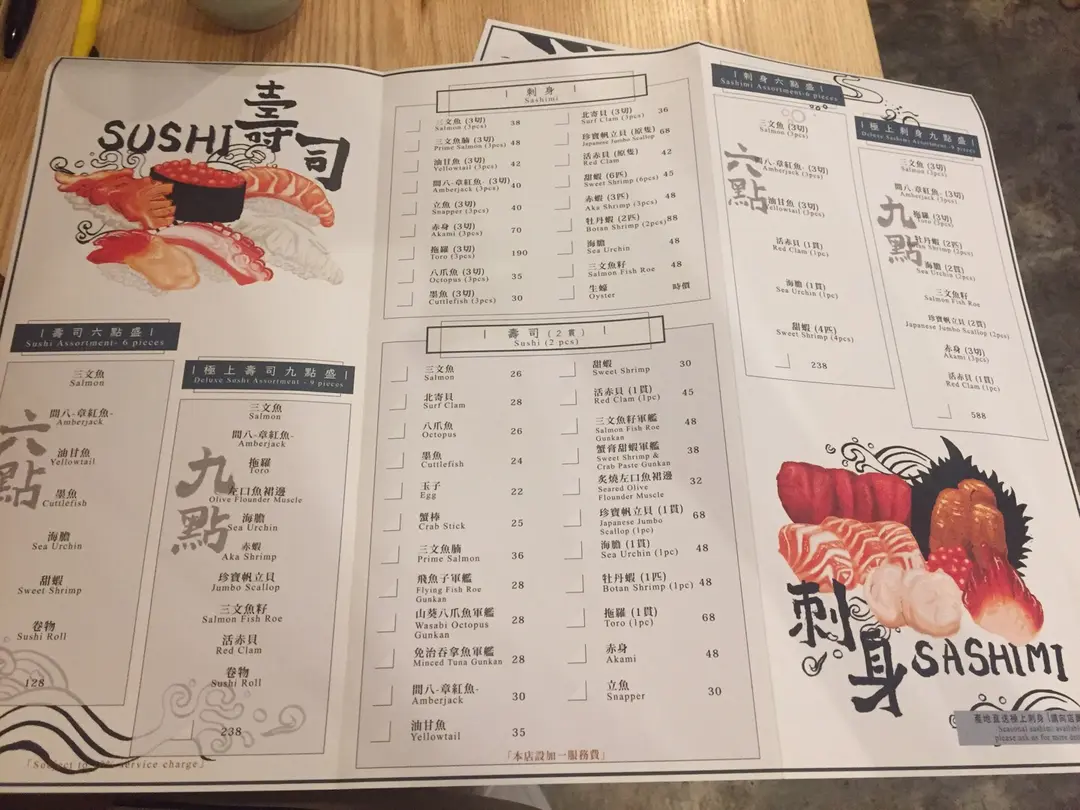 SUSHI
壽司
|壽司六點盛|
Sushi Assortment- 6 pieces
六點
三文魚
Salmon
間八-章紅魚-
Amberjack
油甘魚
Yellowtail
墨魚
Cuttlefish
海膽
Sea Urchin
甜蝦
Sweet Shrimp
卷物
Sushi Roll
128
|極上壽司九點盛|
Deluxe Sushi Assortment - 9 pieces
九點
三文魚
Salmon
間八-章紅魚-
Amberjack
拖羅
Toro
左口魚裙邊
Olive Flounder Muscle
海膽
Sea Urchin
赤蝦
Aka Shrimp
珍寶帆立貝
Jumbo Scallop
三文魚籽
Salmon Fish Roe
活赤貝
Red Clam
卷物
Sushi Roll
238
service charge」
| 刺身 |
Sashimi
三文魚 (3切)
Salmon (3pcs) 38
三文魚腩 (3切)
Prime Salmon (3pcs) 48
油甘魚 (3切)
Yellowtail (3pcs) 42
間八-章紅魚- (3切)
Amberjack (3pcs) 40
立魚 (3切)
Snapper (3pcs) 40
赤身 (3切)
Akami (3pcs) 70
拖羅 (3切)
Toro (3pcs) 190
八爪魚 (3切)
Octopus (3pcs) 35
墨魚 (3切)
Cuttlefish (3pcs) 30
北寄貝 (3切)
Surf Clam (3pcs) 36
珍寶帆立貝 (原隻)
Japanese Jumbo Scallop 68
活赤貝 (原隻)
Red Clam 42
甜蝦 (6匹)
Sweet Shrimp (6pcs) 45
赤蝦 (3匹)
Aka Shrimp (3pcs) 48
牡丹蝦 (2匹)
Botan Shrimp (2pcs) 88
海膽
Sea Urchin 48
三文魚籽
Salmon Fish Roe 48
生蠔
Oyster 時價
| 壽司 (2貫) |
Sushi (2 pcs)
三文魚
Salmon 26
北寄貝
Surf Clam 28
八爪魚
Octopus 26
墨魚
Cuttlefish 24
玉子
Egg 22
蟹棒
Crab Stick 25
三文魚腩
Prime Salmon 36
飛魚子軍艦
Flying Fish Roe
Gunkan 28
山葵八爪魚軍艦
Wasabi Octopus
Gunkan 28
免治吞拿魚軍艦
Minced Tuna Gunkan 28
間八-章紅魚-
Amberjack 30
油甘魚
Yellowtail 35
甜蝦
Sweet Shrimp 30
活赤貝 (1貫)
Red Clam (1pc) 45
三文魚籽軍艦
Salmon Fish Roe
Gunkan 48
蟹膏甜蝦軍艦
Sweet Shrimp &
Crab Paste Gunkan 38
炙燒左口魚裙邊
Seared Olive
Flounder Muscle 32
珍寶帆立貝 (1貫)
Japanese Jumbo
Scallop (1pc) 68
海膽 (1貫)
Sea Urchin (1pc) 48
牡丹蝦 (1匹)
Botan Shrimp (1pc) 48
拖羅 (1貫)
Toro (1pc) 68
赤身
Akami 48
立魚
Snapper 30
「本店設加一服務費」
|刺身六點盛|
Sashimi Assortment-6 pieces
六點
三文魚 (3切)
Salmon (3pcs)
間八-章紅魚- (3切)
Amberjack (3pcs)
油甘魚 (3切)
Yellowtail (3pcs)
活赤貝 (1貫)
Red Clam (1pc)
海膽 (1貫)
Sea Urchin (1pc)
甜蝦 (4匹)
Sweet Shrimp (4pcs)
238
|極上刺身九點盛|
Deluxe Sashimi Assortment -9 pieces
九點
三文魚 (3切)
Salmon (3pcs)
間八-章紅魚- (3切)
Amberjack (3pcs)
拖羅 (3切)
Toro (3pcs)
牡丹蝦 (2匹)
Botan Shrimp (2pcs)
海膽 (2貫)
Sea Urchin (2pcs)
三文魚籽
Salmon Fish Roe
珍寶帆立貝 (2貫)
Japanese Jumbo Scallop (2pcs)
赤身 (3切)
Akami (3pcs)
活赤貝 (1貫)
Red Clam (1pc)
588
刺身
SASHIMI
產地直送極上刺身
Seasonal sashimi available
please ask us for more